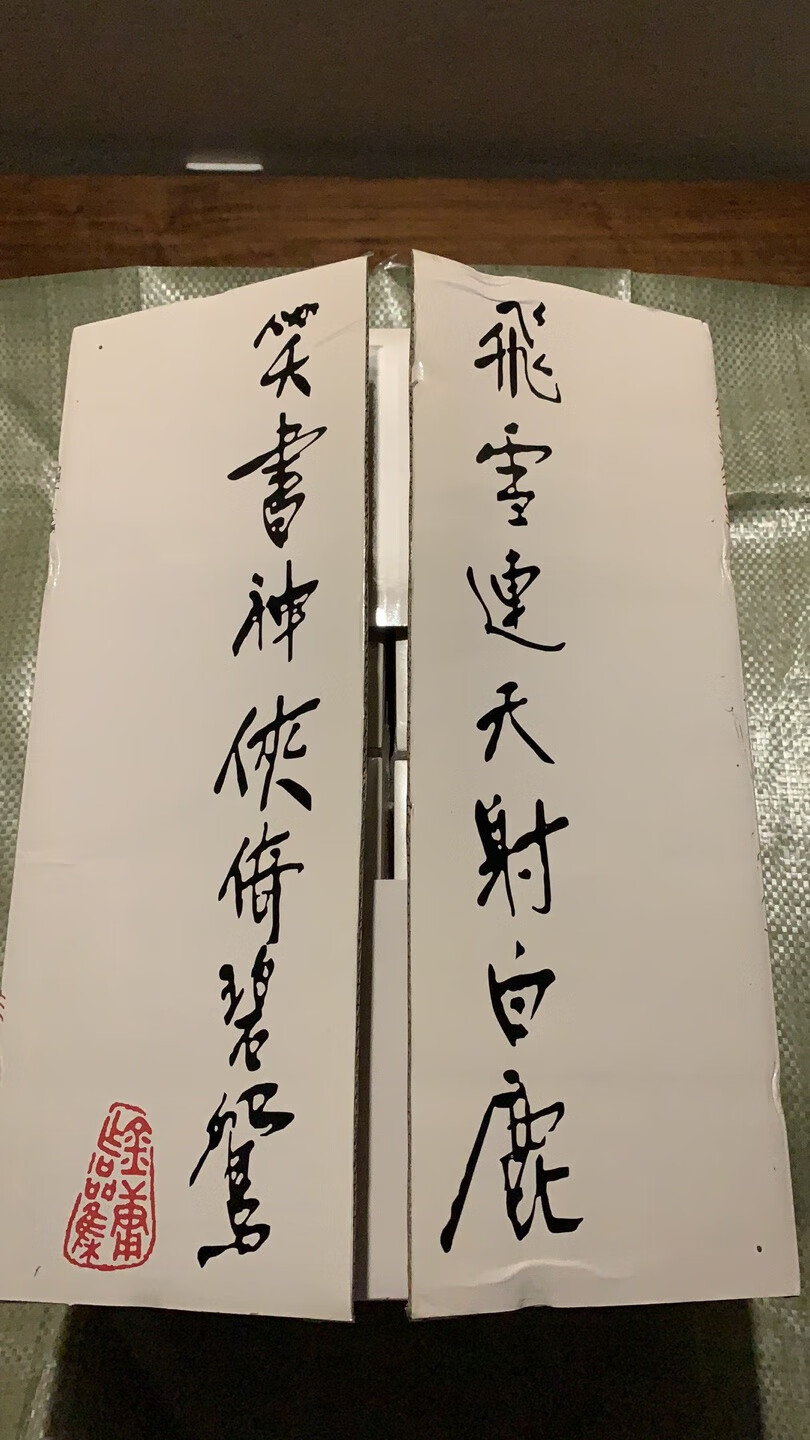 飛雪連天射白鹿
笑書神俠倚碧鴛
金庸
品集